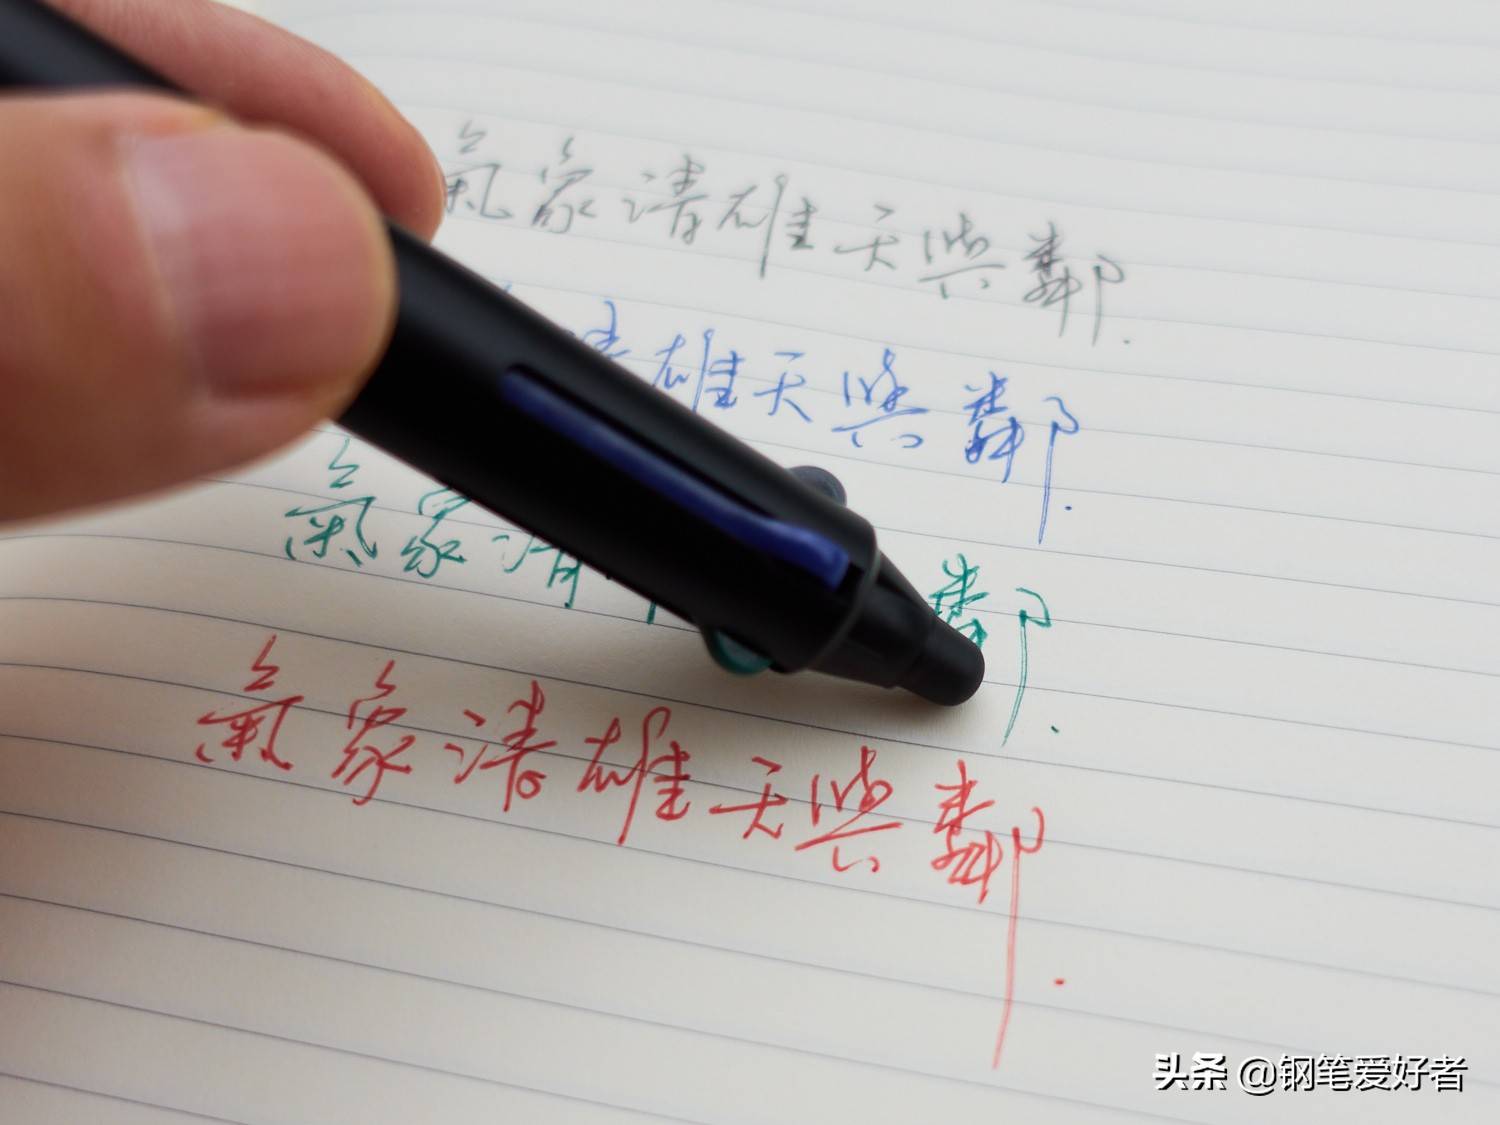 氣象清雄天與鄰.
清雄天與鄰.
氣象清鄰.
氣象清雄天與鄰.
头条 @钢笔爱好者